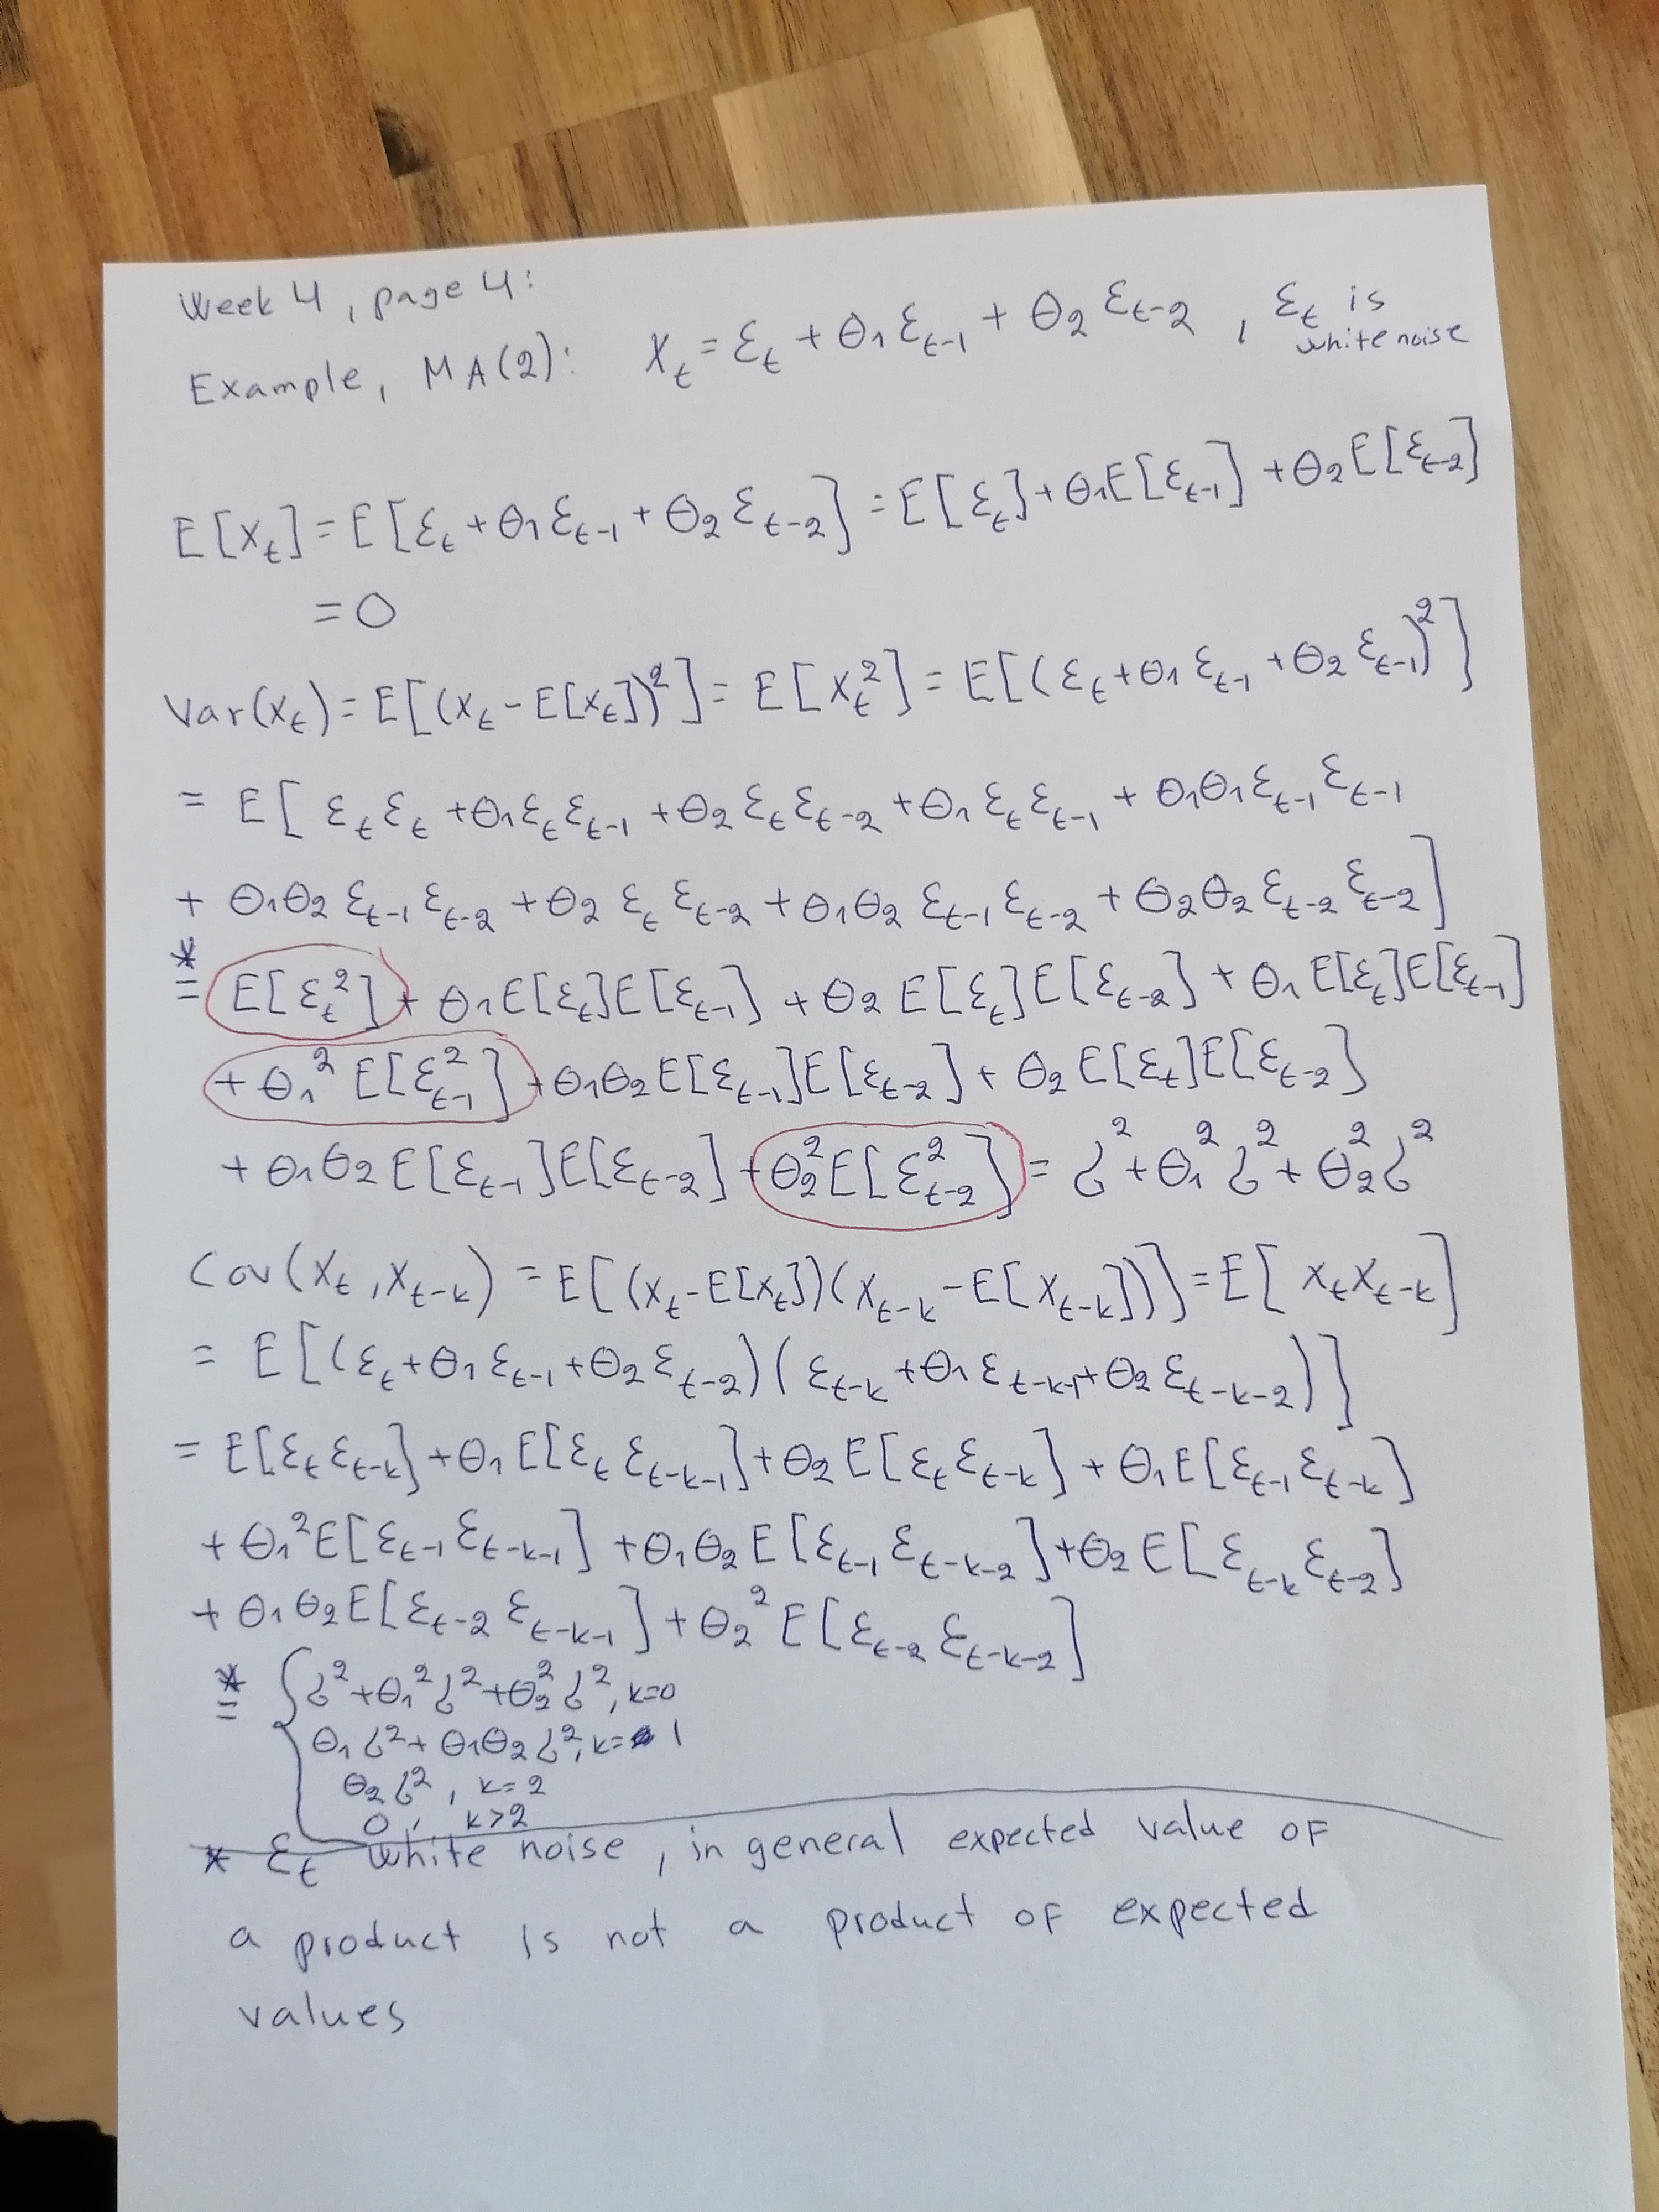 Week 4, page 4:
Example, MA(2): X_t = ε_t + θ_1 ε_{t-1} + θ_2 ε_{t-2} , ε_t is white noise
E[X_t] = E[ε_t + θ_1 ε_{t-1} + θ_2 ε_{t-2}] = E[ε_t] + θ_1 E[ε_{t-1}] + θ_2 E[ε_{t-2}]
= 0
Var(X_t) = E[(X_t - E[X_t])^2] = E[X_t^2] = E[(ε_t + θ_1 ε_{t-1} + θ_2 ε_{t-1})^2]
= E[ ε_t ε_t + θ_1 ε_t ε_{t-1} + θ_2 ε_t ε_{t-2} + θ_1 ε_t ε_{t-1} + θ_1 θ_1 ε_{t-1} ε_{t-1}
+ θ_1 θ_2 ε_{t-1} ε_{t-2} + θ_2 ε_t ε_{t-2} + θ_1 θ_2 ε_{t-1} ε_{t-2} + θ_2 θ_2 ε_{t-2} ε_{t-2}]
*= E[ε_t^2] + θ_1 E[ε_t]E[ε_{t-1}] + θ_2 E[ε_t]E[ε_{t-2}] + θ_1 E[ε_t]E[ε_{t-1}]
+ θ_1^2 E[ε_{t-1}^2] + θ_1 θ_2 E[ε_{t-1}]E[ε_{t-2}] + θ_2 E[ε_t]E[ε_{t-2}]
+ θ_1 θ_2 E[ε_{t-1}]E[ε_{t-2}] + θ_2^2 E[ε_{t-2}^2] = σ^2 + θ_1^2 σ^2 + θ_2^2 σ^2
Cov(X_t, X_{t-k}) = E[(X_t - E[X_t])(X_{t-k} - E[X_{t-k}])] = E[X_t X_{t-k}]
= E[(ε_t + θ_1 ε_{t-1} + θ_2 ε_{t-2})(ε_{t-k} + θ_1 ε_{t-k-1} + θ_2 ε_{t-k-2})]
= E[ε_t ε_{t-k}] + θ_1 E[ε_t ε_{t-k-1}] + θ_2 E[ε_t ε_{t-k}] + θ_1 E[ε_{t-1} ε_{t-k}]
+ θ_1^2 E[ε_{t-1} ε_{t-k-1}] + θ_1 θ_2 E[ε_{t-1} ε_{t-k-2}] + θ_2 E[ε_{t-k} ε_{t-2}]
+ θ_1 θ_2 E[ε_{t-2} ε_{t-k-1}] + θ_2^2 E[ε_{t-2} ε_{t-k-2}]
*= { σ^2 + θ_1^2 σ^2 + θ_2^2 σ^2, k=0
θ_1 σ^2 + θ_1 θ_2 σ^2, k= 1
θ_2 σ^2, k=2
0, k>2
* ε_t white noise, in general expected value of
a product is not a product of expected
values